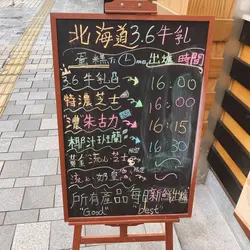 北海道3.6牛乳
蛋糕 出爐時間
3.6牛乳 16:00
特濃芝士 16:00
濃朱古力 16:15
椰汁班蘭 16:30
流心芝士
流心奶皇
所有產品每日新鮮出爐
"Good" "best"